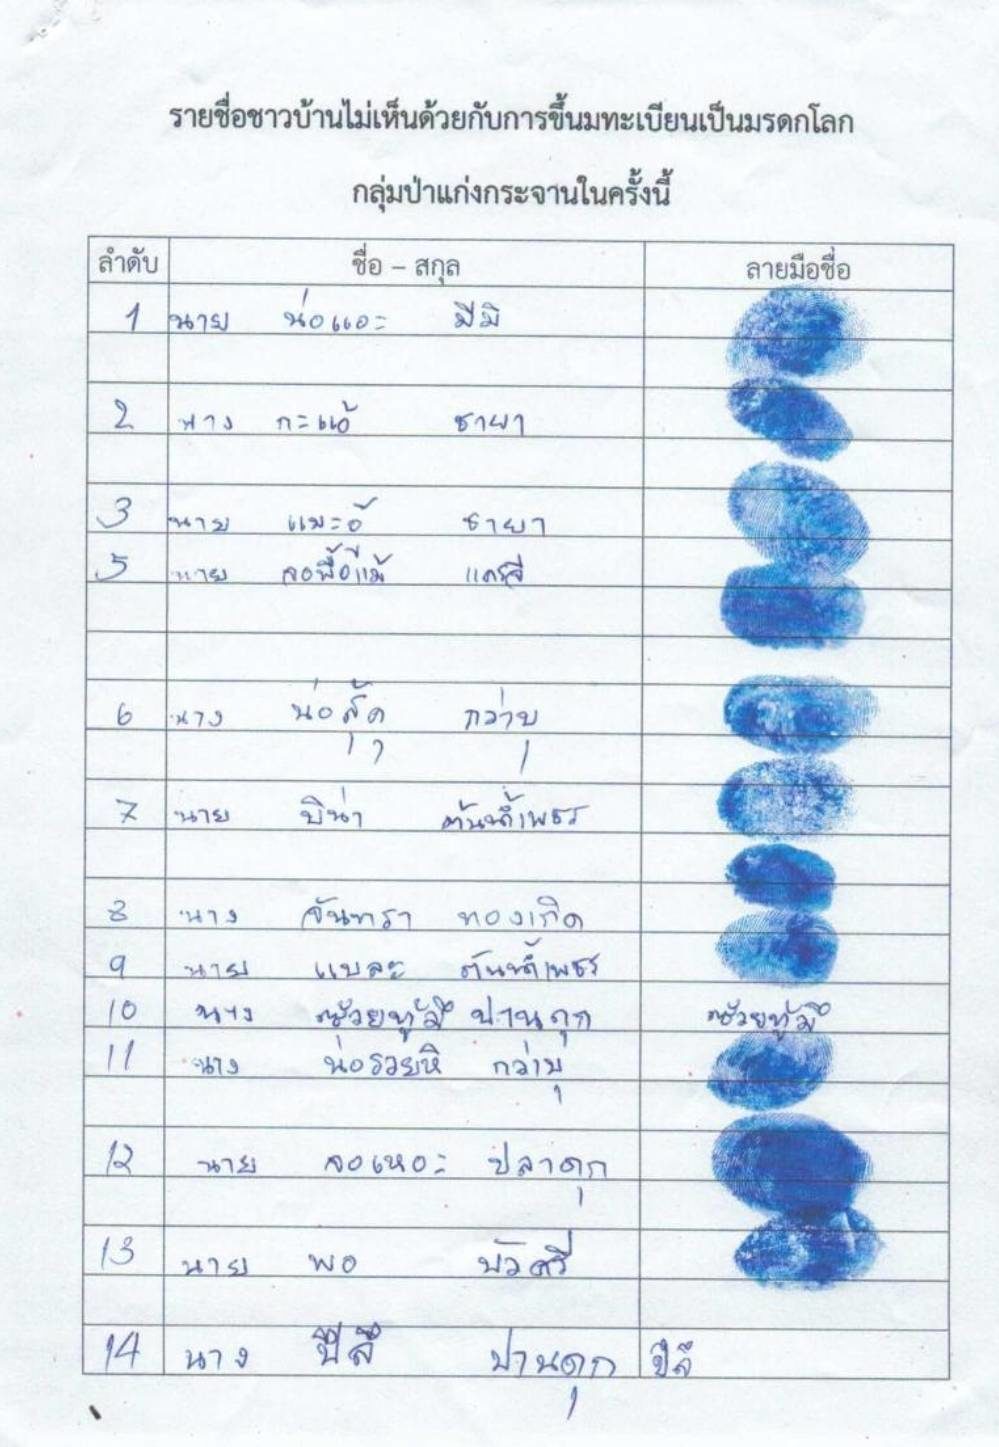 รายชื่อชาวบ้านไม่เห็นด้วยกับการขึ้นมทะเบียนเป็นมรดกโลก
กลุ่มป่าแก่งกระจานในครั้งนี้
ลำดับ ชื่อ – สกุล ลายมือชื่อ
1 นาย น่อแอะ มีมิ
2 นาง กะแอ้ ชายา
3 นาย แมะอ้ ชายา
5 นาย
6 นาง น่อสุ้ดุ กว่าบุ
7 นาย บิน่า ต้นน้ำเพชร
8 นาง จันทรา ทองเกิด
9 นาย แบละ ต้นน้ำเพชร
10 นาง ปานดุก
11 นาง น่อรวยหิ กว่าบุ
12 นาย จอเหอะ ปลาดุก
13 นาย พอ บัวศรี
14 นาง ปีลึ ปานดุก ปีลึ